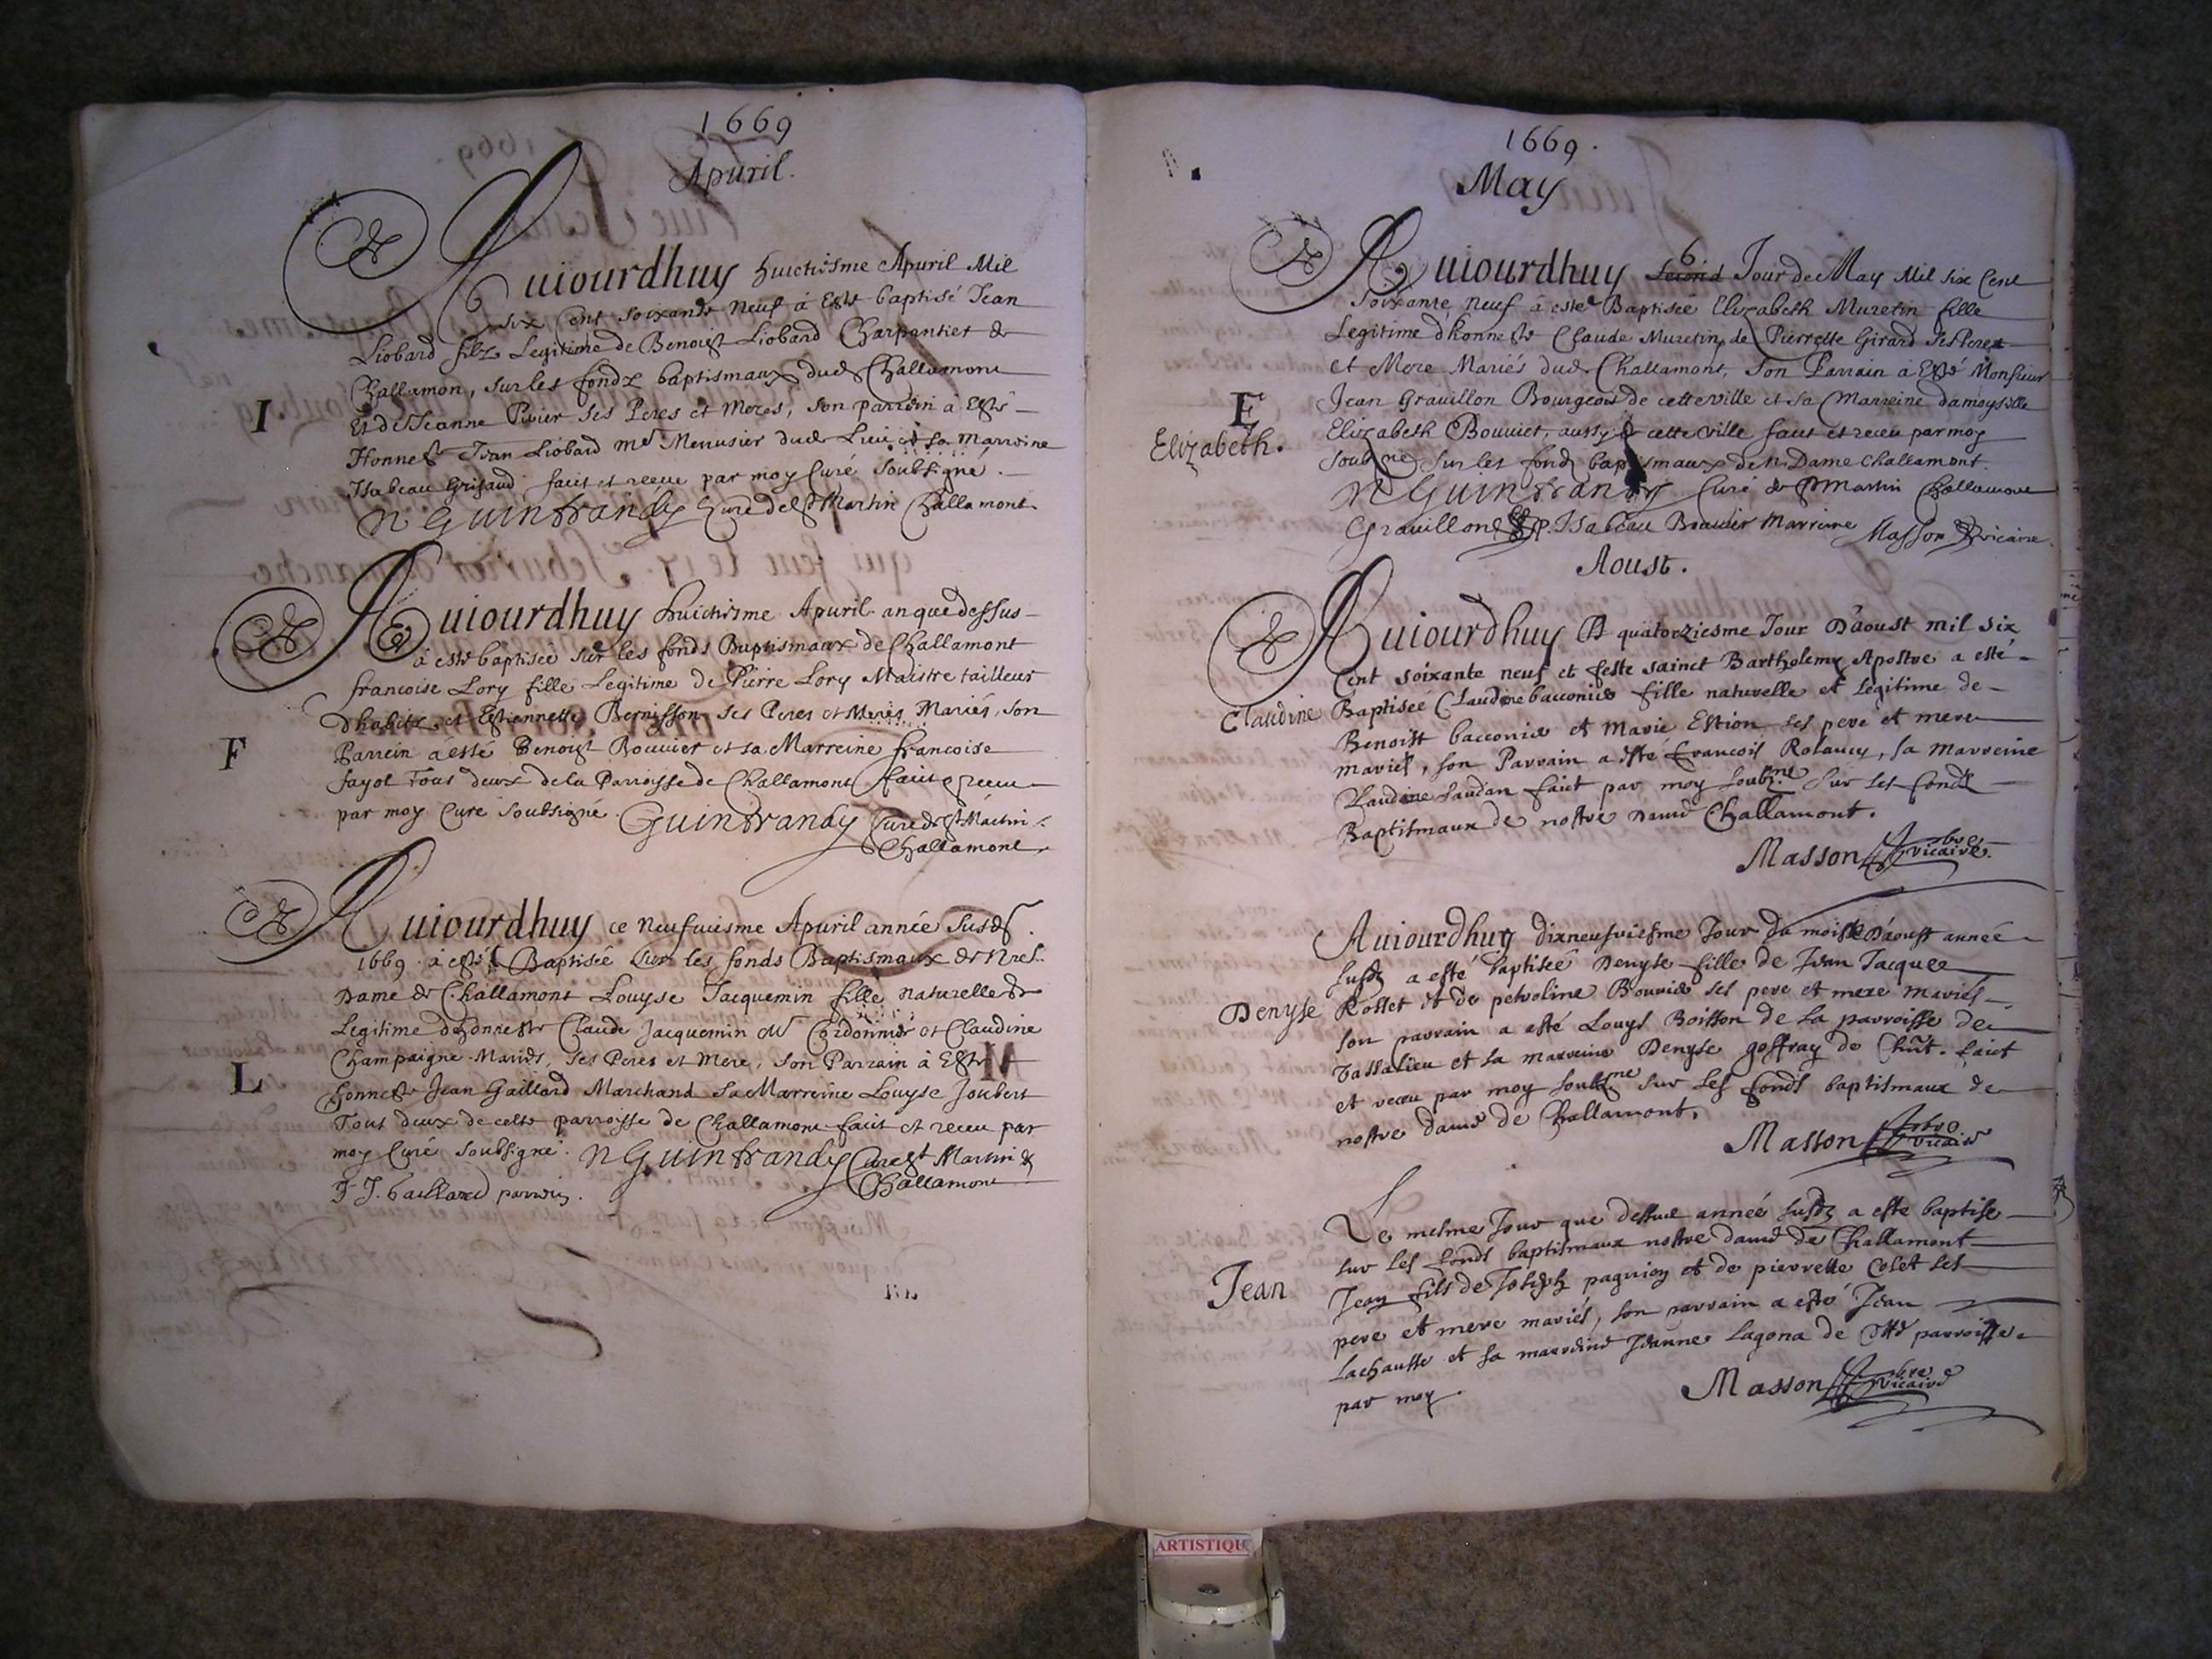 1669
Apuril.
Auiourdhuy huictiesme Apuril Mil
six Cent soixante Neuf à Esté baptisé Jean
Liobard filz Legitime de Benoist Liobard Charpentier de
Challamon, sur les fondz baptismaux dud Challamont
Et de Jeanne Peres et Meres, son parrein à Esté
Honneste Jean Liobard me Menusier dud Lieu et sa Marreine
I
Isabeau Grisaud faict et receu par moy Curé soubsigné.
N Guintrandy Curé de St Martin Challamont.
Auiourdhuy huictiesme Apuril an que dessus
à esté baptisée sur les fonds Baptismaux de Challamont
francoise Lory fille Legitime de Pierre Lory Maistre tailleur
Dhabitz et Estiennette Bernisson ses Peres et Meres Mariés, son
Parrein à esté Benoist Bouuier et sa Marreine francoise
F
fayol Tous deux de la Parroisse de Challamont faict & receu
par moy Curé soubsigné Guintrandy Curé de St Martin
Challamont.
Auiourdhuy ce neufuiesme Apuril année susd.
1669 a esté Baptisée sur les fonds Baptismaux de Nre
Dame de Challamont Louyse Jacquemin fille naturelle &
Legitime dhonneste Claude Jacquemin Me Cordonnier et Claudine
Champaigne Mariés, ses Peres et Mere, son Parrain à Esté
L
honneste Jean Gaillard Marchand sa Marreine Louyse Joubert
Tout deux de cette parroisse de Challamont faict et receu par
moy Curé soubsigné. N Guintrandy Curé St Martin &
Challamont
J. Gaillard parrein.
1669.
May
6
Auiourdhuy second Jour de May Mil six Cent
soixante neuf à esté Baptisée Elizabeth Muretin fille
Legitime dhonneste Claude Muretin, de Pierrette Girard ses Peres
et Mere Mariés dud. Challamont, son Parrain à Esté Monsieur
E
Jean Grauillon Bourgeois de cette ville et sa Marreine damoyselle
Elizabeth.
Elizabeth Bouuier, aussy cette ville faict et receu par moy
soubne sur les fondz baptismaux de N. Dame Challamont.
N Guintrandy Curé de St Martin Challamont
Grauillon p. Isabeau Bouuier Marreine Masson vicaire.
Aoust.
Auiourdhuy quatorziesme Jour D'aoust mil six
Cent soixante neuf et feste sainct Bartholemy Apostre a esté
Claudine
Baptisée Claudine bacconier fille naturelle et Legitime de
Benoist bacconier et Marie Estion ses pere et mere
mariés, son Parrain a esté francois Rolancy, sa marreine
Claudine Laudan faict par moy soubne sur les fonds
Baptismaux de nostre Dame Challamont.
Masson pbre
vicaire.
Auiourdhuy dixneufuiesme Jour du mois D'aoust année
susd a esté baptisée Denyse fille de Jean Jacques
Denyse
Rosset et de petroline Bouuier ses pere et mere mariés
son parrain a esté Louys Boisson de la parroisse de
Vassalieu et sa marreine Denyse goffray de Chnt. faict
et receu par moy soubne sur les fonds baptismaux de
nostre dame de Challamont.
Masson pbre
vicaire
Le mesme Jour que dessus année susd a esté baptisé
sur les fonds baptismaux nostre dame de Challamont
Jean
Jean fils de Joseph pagnion et de pierrette Colet ses
pere et mere mariés, son parrain a esté Jean
Lachausse et sa marreine Jeanne Lagona de parroisse
par moy.
Masson pbre
vicaire
ARTISTIQU